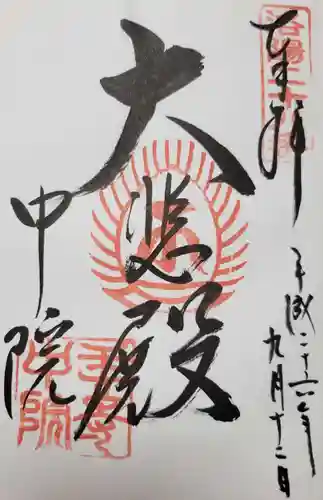 奉拝
平成二十六年
九月十二日
大悲殿
中院